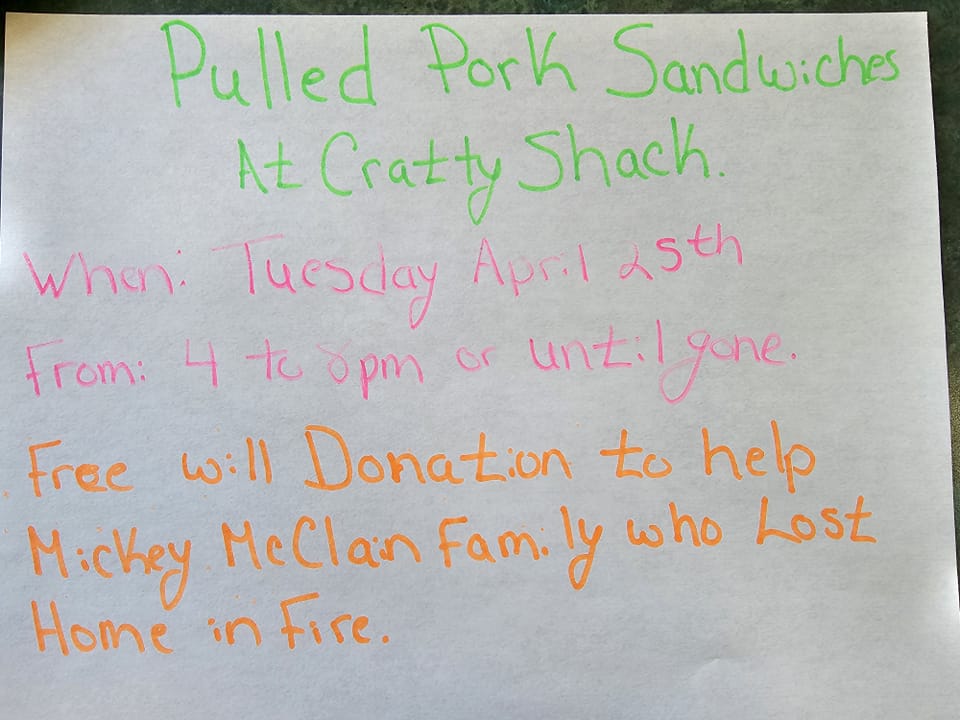 Pulled Pork Sandwiches
At Cratty Shack.
When: Tuesday April 25th
From: 4 to 8pm or until gone.
Free will Donation to help
Mickey McClain Family who Lost
Home in Fire.